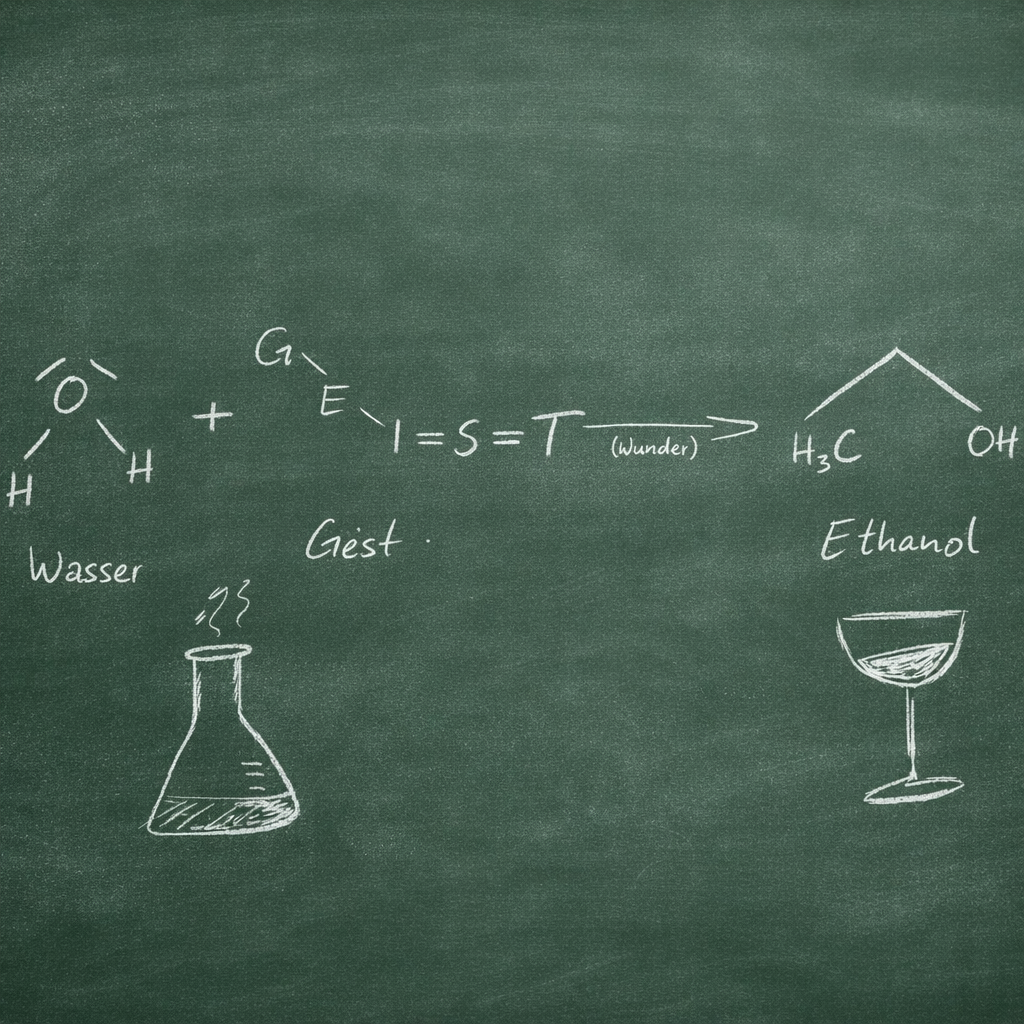 O
H H
+
G
E
I = S = T
(Wunder)
H₃C OH
Wasser
Geist
Ethanol